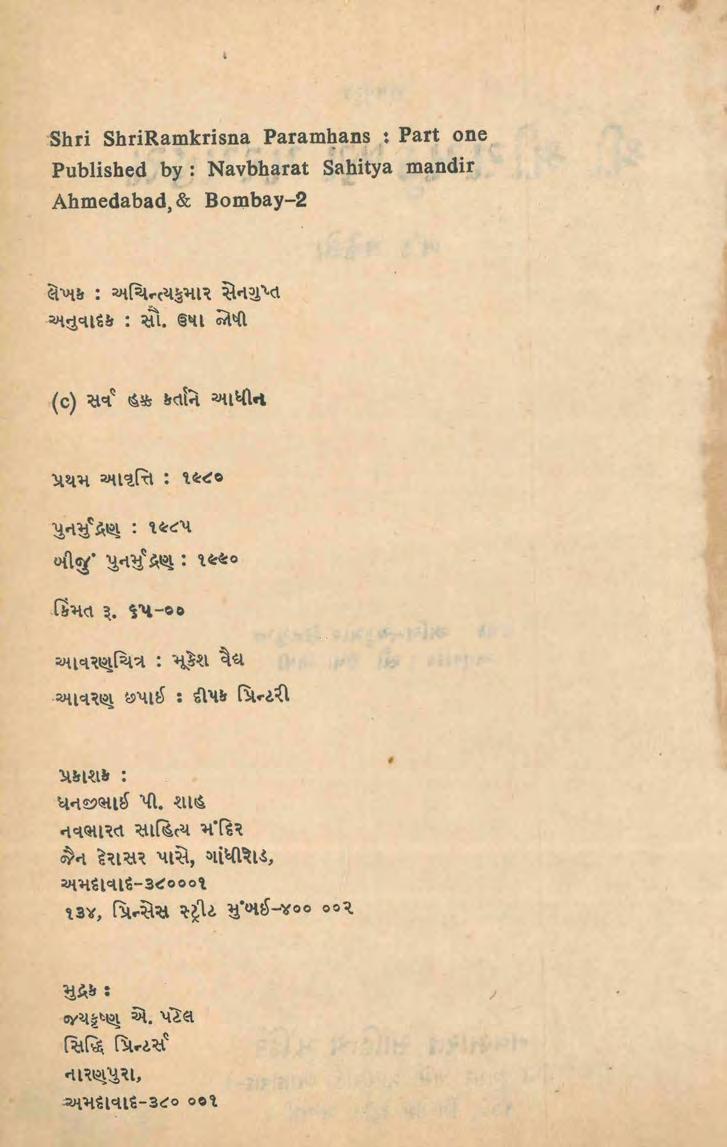 Shri ShriRamkrisna Paramhans : Part one
Published by : Navbharat Sahitya mandir
Ahmedabad, & Bombay-2
લેખક : અચિન્ત્યકુમાર સેનગુપ્ત
અનુવાદક : સૌ. ઉષા જોષી
(c) સર્વ હક્ક કર્તાને આધીન
પ્રથમ આવૃત્તિ : ૧૯૮૦
પુનર્મુદ્રણ : ૧૯૮૫
બીજું પુનર્મુદ્રણ : ૧૯૯૦
કિંમત રૂ. ૬૫-૦૦
આવરણચિત્ર : મૂકેશ વૈદ્ય
આવરણ છપાઈ : દીપક પ્રિન્ટરી
પ્રકાશક :
ધનજીભાઈ પી. શાહ
નવભારત સાહિત્ય મંદિર
જૈન દેરાસર પાસે, ગાંધીરોડ,
અમદાવાદ-૩૮૦૦૦૧
૧૩૪, પ્રિન્સેસ સ્ટ્રીટ મુંબઈ-૪૦૦ ૦૦૨
મુદ્રક :
જયકૃષ્ણ એ. પટેલ
સિદ્ધિ પ્રિન્ટર્સ
નારણપુરા,
અમદાવાદ-૩૮૦ ૦૦૧